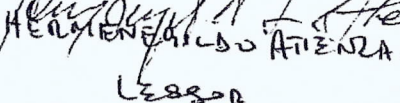 HERMENEGILDO ATIENZA
LESSOR